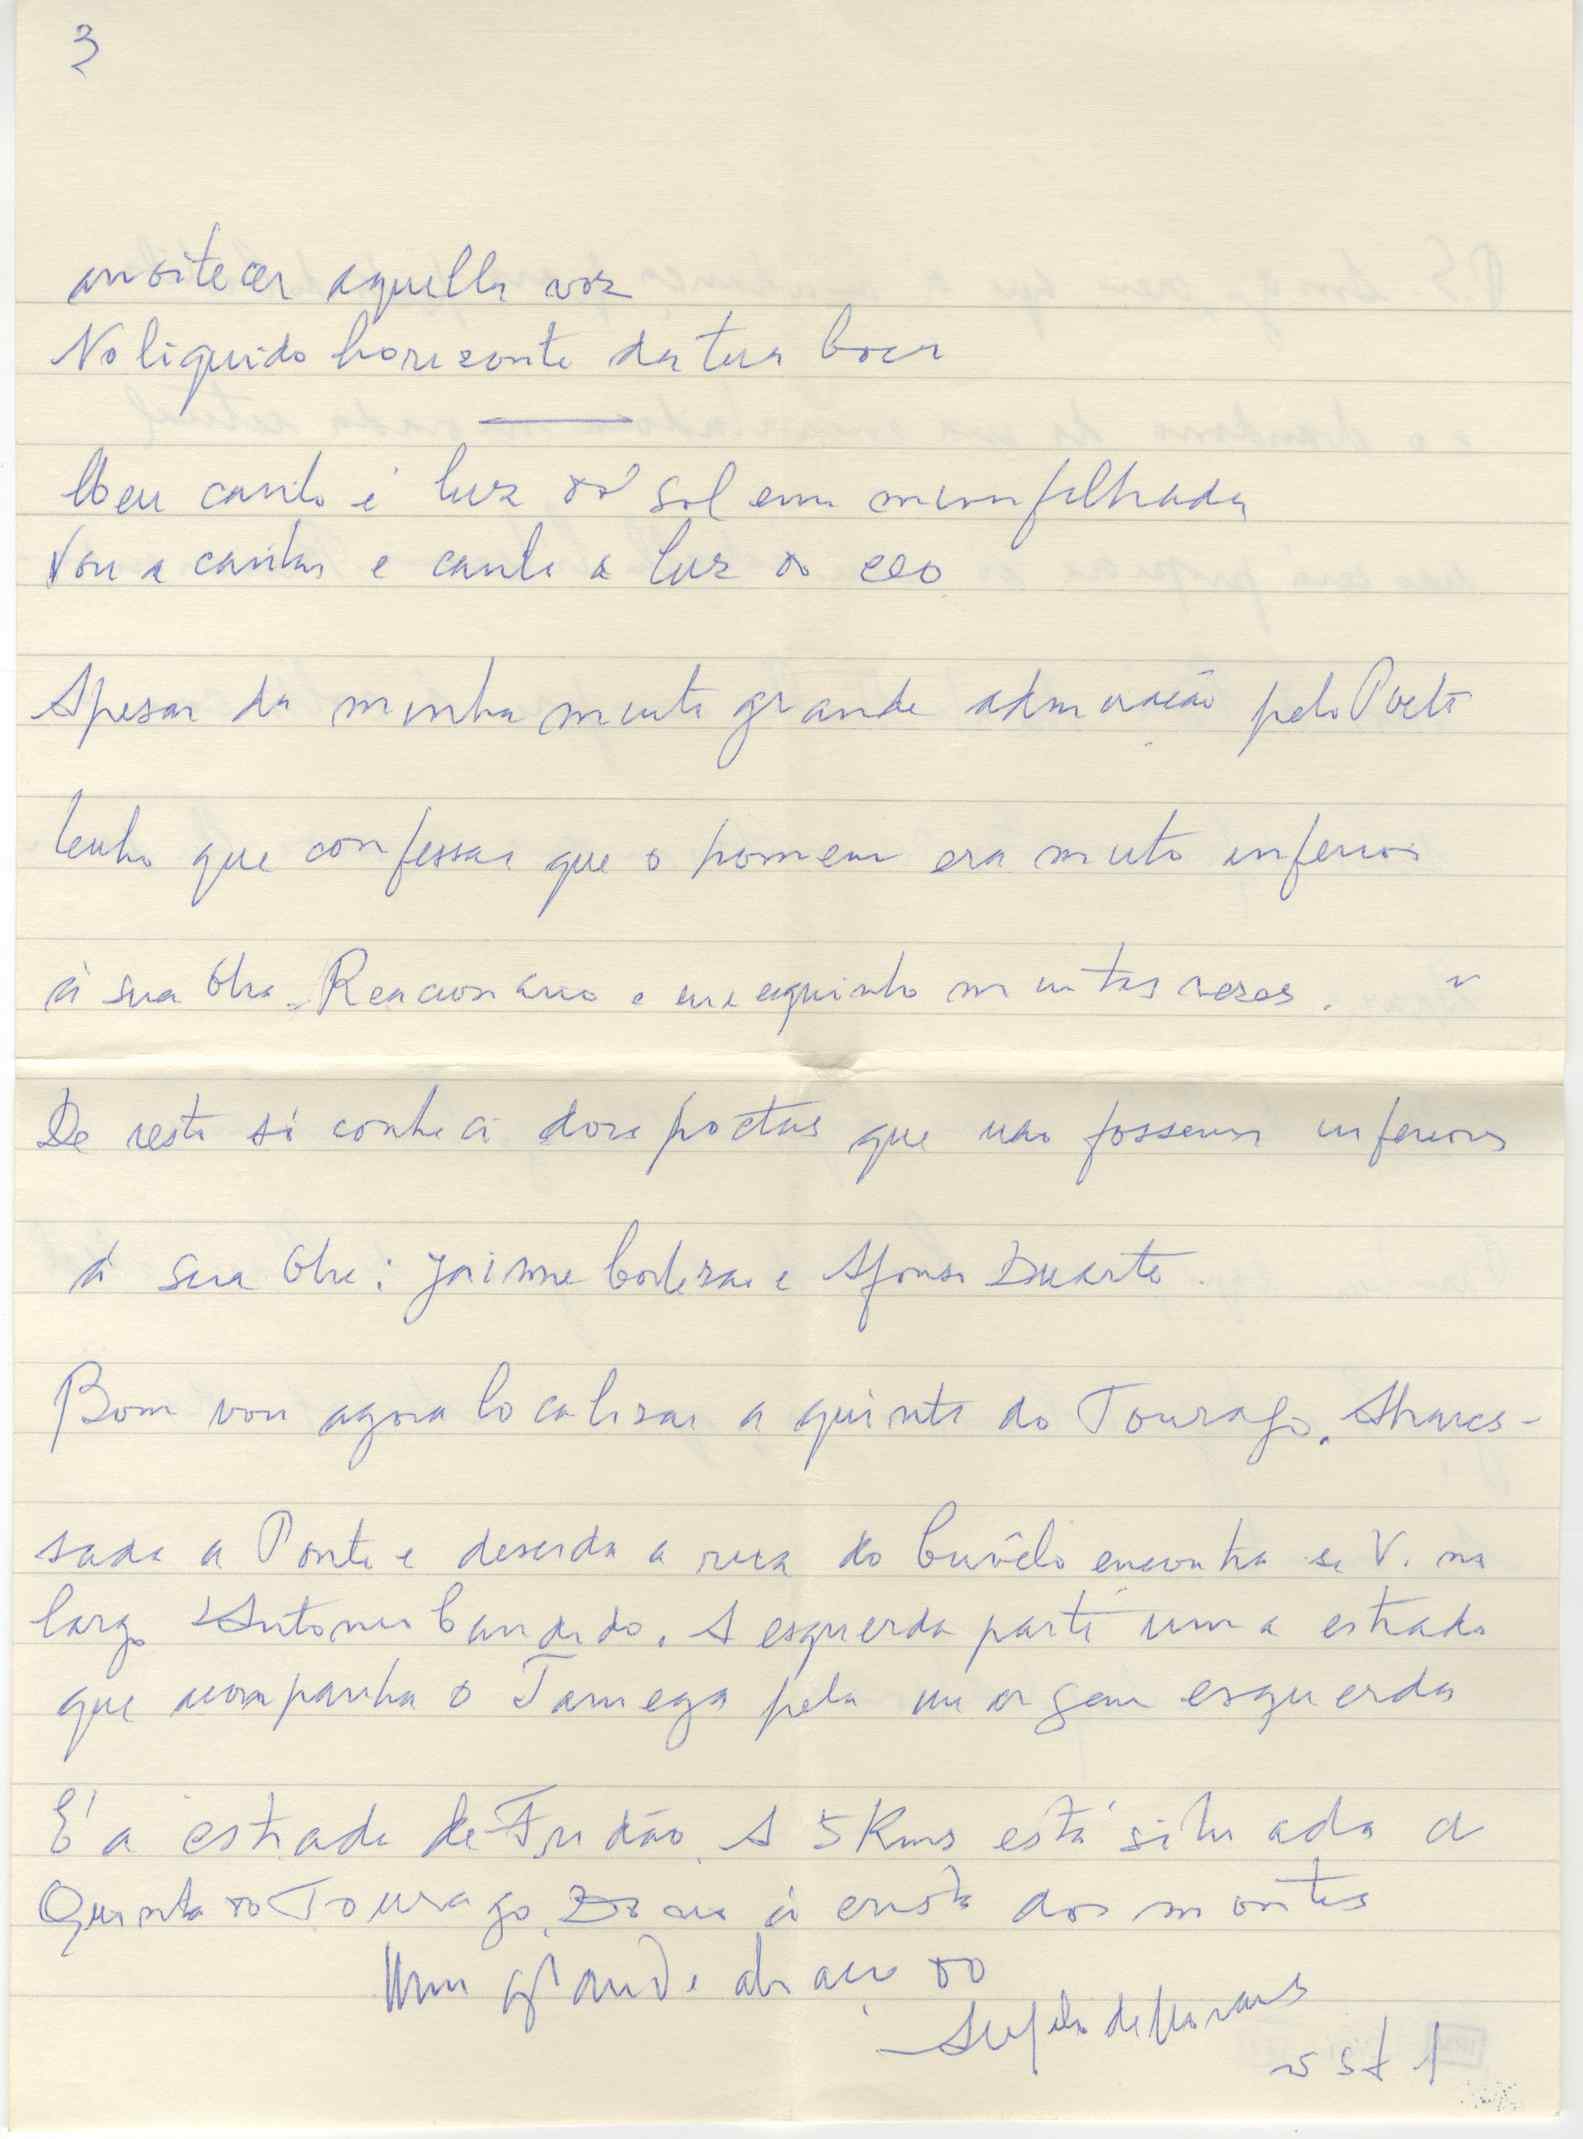 3
anoitecer aquella voz
No liquido horizonte da tua boca
Meu canto é luz do sol em mim filtrada
Vou a cantar e canta a luz do ceo
Apesar da minha muita grande admiração pelo Poeta
tenho que confessar que o homem era muito inferior
á sua Obra. Reacionario e mesquinho muitas vezes.
De resto só conheci dois poetas que não fossem inferiores
á sua Obra: Jaime Cortezão e Afonso Duarte.
Bom vou agora localizar a quinta do Tourago. Atraves-
sada a Ponte e descida a rua do Covêlo encontra se V. no
largo Antonio Candido. A esquerda parte uma estrada
que acompanha o Tamega pela margem esquerda
É a estrada de Fridão. A 5 Kms está situada a
Quinta do Tourago. Do rio á crista dos montes
Um grande abraço do
de Moraes